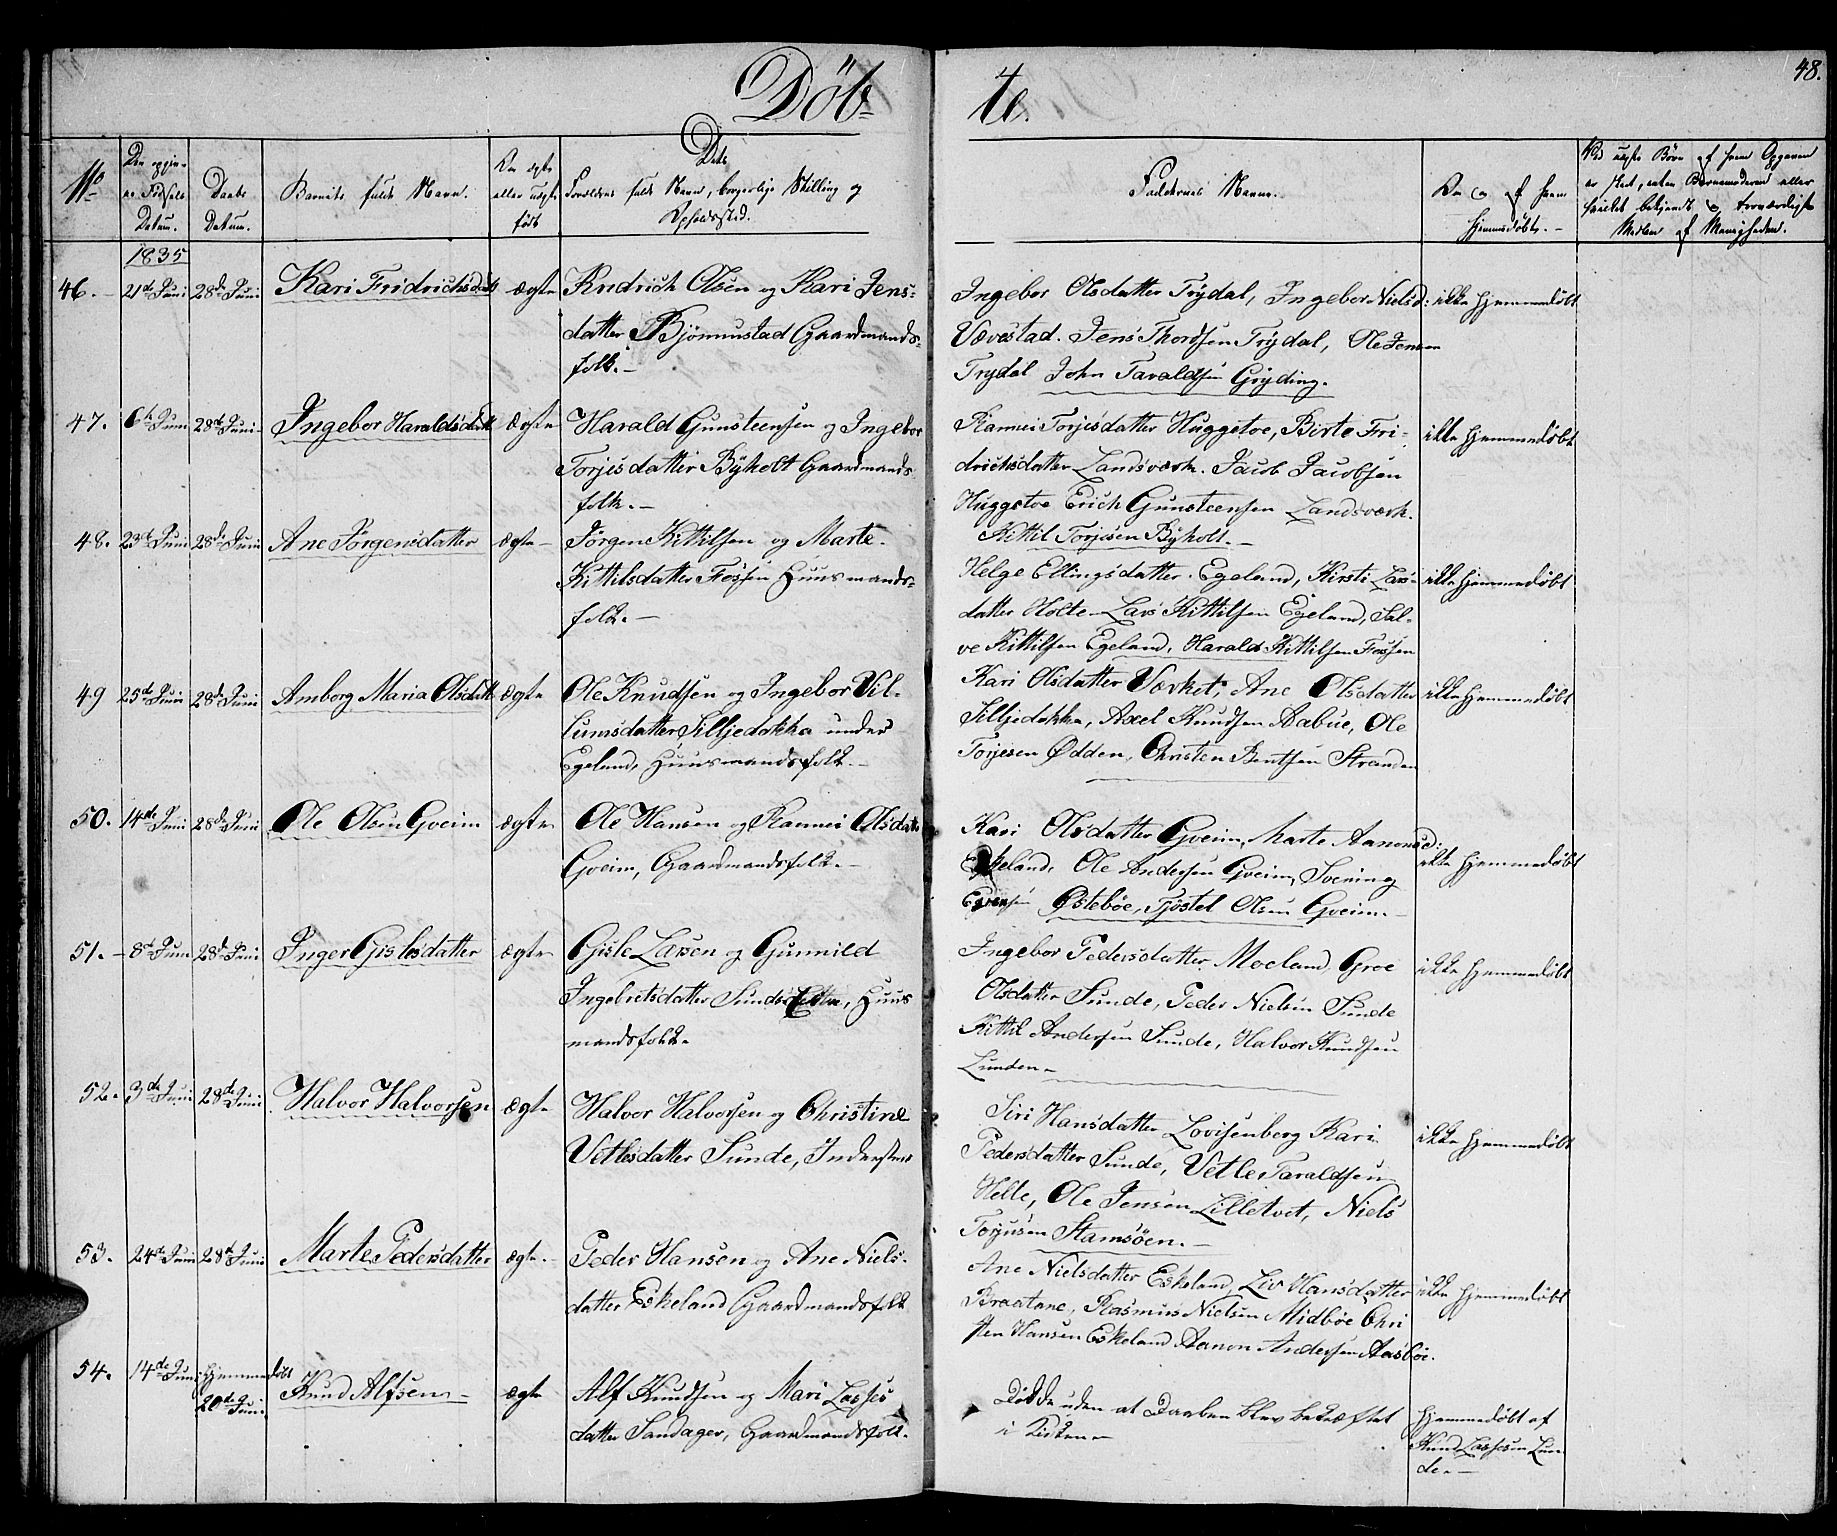 Döb-
te.
48.
No
Den opgiv-
ne Fødsels
Datum.
Daabs
Datum.
Barnets fulde Navn.
Om ægte
eller uægte
født
Dets
Forældres fulde Navn, borgerlige Stilling og
Opholdssted.
Faddernes Navne.
Om og af hvem
hjemmedøbt.-
Ved uægte Børn af hvem Opgaven
er skeet, enten Barnemoderen eller
hvilket bekjendt og troværdigt
Medlem af Menigheden.
1835
46. - 21de Juni 28de Juni Kari Fridrichsdatt ægte
Fridrich Olsen og Kari Jens-
datter Björnustad Gaardmands-
folk.-
Ingebor Olsdatter Trydal, Ingebor Nielsd:
Vævestad. Jens Thordsen Trydal, Ole Jensen
Trydal John Taraldsen Gryding.
ikke hjemmedøbt
47. 6te Juni 28de Juni- Ingebor Haraldsdatt Ægte
Harald Gunsteensen og Ingebor
Torjisdatter Byholt Gaardmands
folk.-
Rannei Torjisdatter Huggetoe, Birte Fri-
drichsdatter Landsværk. Jacob Jacobsen
Huggetoe Erich Gunsteensen Landsværk.
Kittil Torjisen Byholt.-
ikke hjemmedøbt
48. 23de Juni 28de Juni Ane Jörgensdatter ægte-
Jörgen Kittilsen og Marte
Kittilsdatter Fossen Huusmands-
folk.-
Helge Ellingsdatter Egeland, Kirsti Lars-
datter Holte- Lars Kittilsen Egeland, Sal-
ve Kittilsen Egeland, Harald Kittilsen Fossen
ikke hjemmedøbt
49 25de Juni 28de Juni Amborg Maria Olsdatt ægte
Ole Knudsen og Ingebor Vil-
lumsdatter Silljedokka under
Egeland, Huusmandsfolk.-
Kari Olsdatter Værket, Ane Olsdatter
Silljedokka, Axel Knudsen Aabue, Ole
Torjesen Ødden, Christen Bentsen Stranden
ikke hjemmedøbt
50. 14de Juni 28de Juni Ole Olsen Gveim ægte
Ole Hansen og Rannei Olsdatt
Gveim, Gaardmandsfolk.-
Kari Olsdatter Gveim, Marte Aanonsd:
Eskeland, Ole Andersen Gveim, Svenning
Østebøe, Tjöstel Olsen Gveim.-
ikke hjemmedøbt
51. - 8de Juni 28de Juni Inger Gislesdatter ægte
Gisle Larsen og Gunnild
Ingebretsdatter Sunds , Huus
mandsfolk.
Ingebor Pedersdatter Moeland, Groe
Olsdatter Sunde, Peder Nielsen Sunde
Kittil Andersen Sunde, Halvor Knudsen
Lunden-
ikke hjemmedøbt
52. 3de Juni 28de Juni Halvor Halvorsen ægte
Halvor Halvorsen og Christine
Vetlesdatter Sunde, Inderster
Siri Hansdatter Lovisenberg Kari
Pedersdatter Sunde, Vetle Taraldsen
Helle, Ole Jensen Lilletvet, Niels
Torjusen Stamsöen.-
ikke hjemmedøbt
53. 24de Juni 28de Juni Marte Pedersdatter ægte.
Peder Hansen og Ane Niels-
datter Eskeland Gaardmandsfolk
Ane Nielsdatter Eskeland, Liv Hansdatter
Braatane, Rasmus Nielsen Midböe Chri
sten Hansen Eskeland Aanon Andersen Aasböe.
ikke hjemmedøbt
54. 14de Juni hjemmedøbt
20de Juni Knud Alfsen- ægte
Alf Knudsen og Mari Lasses
datter Sandager, Gaardmandsfolk.
Døde uden at Daaben blev bekræftet
i Kirken-
hjemmedøbt af
Knud Lassesen Lun
de.-